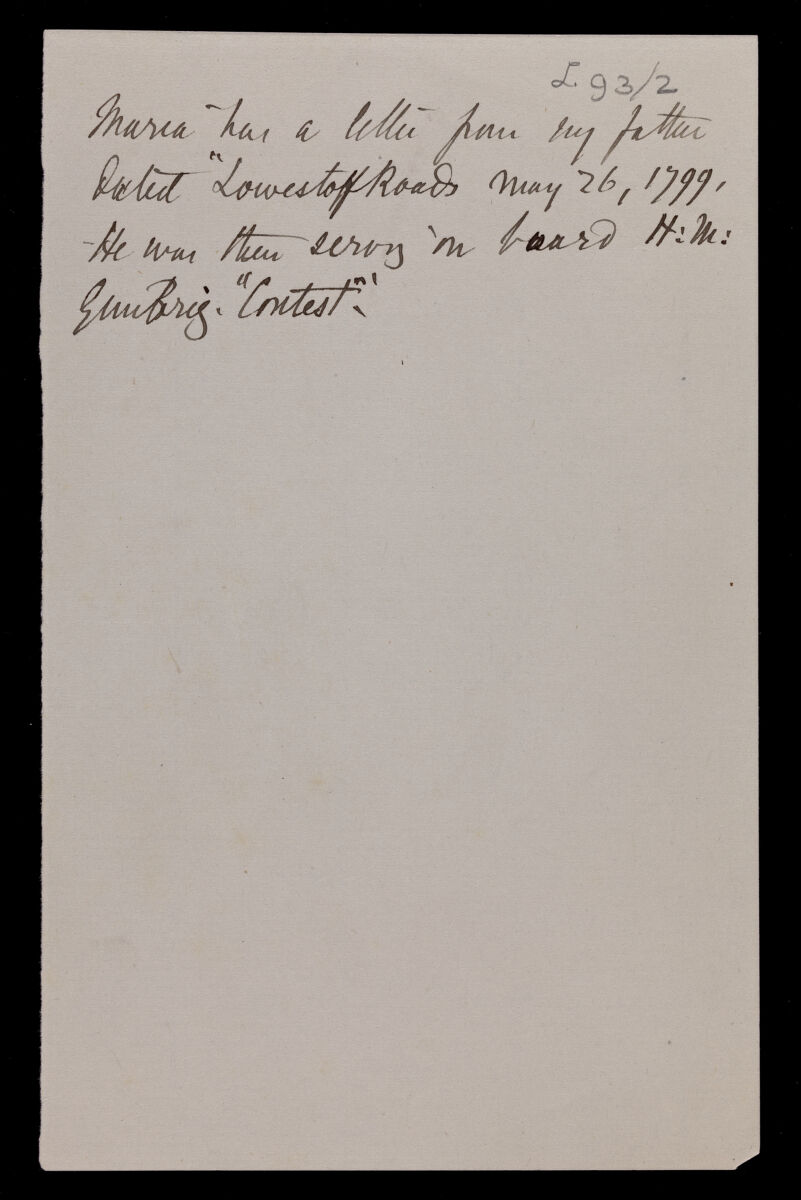 L 93/2
Maria has a letter from my father
dated "Lowestoff Roads May 26, 1799.
He was then serving on board H: M:
GunBrig. "Contest".